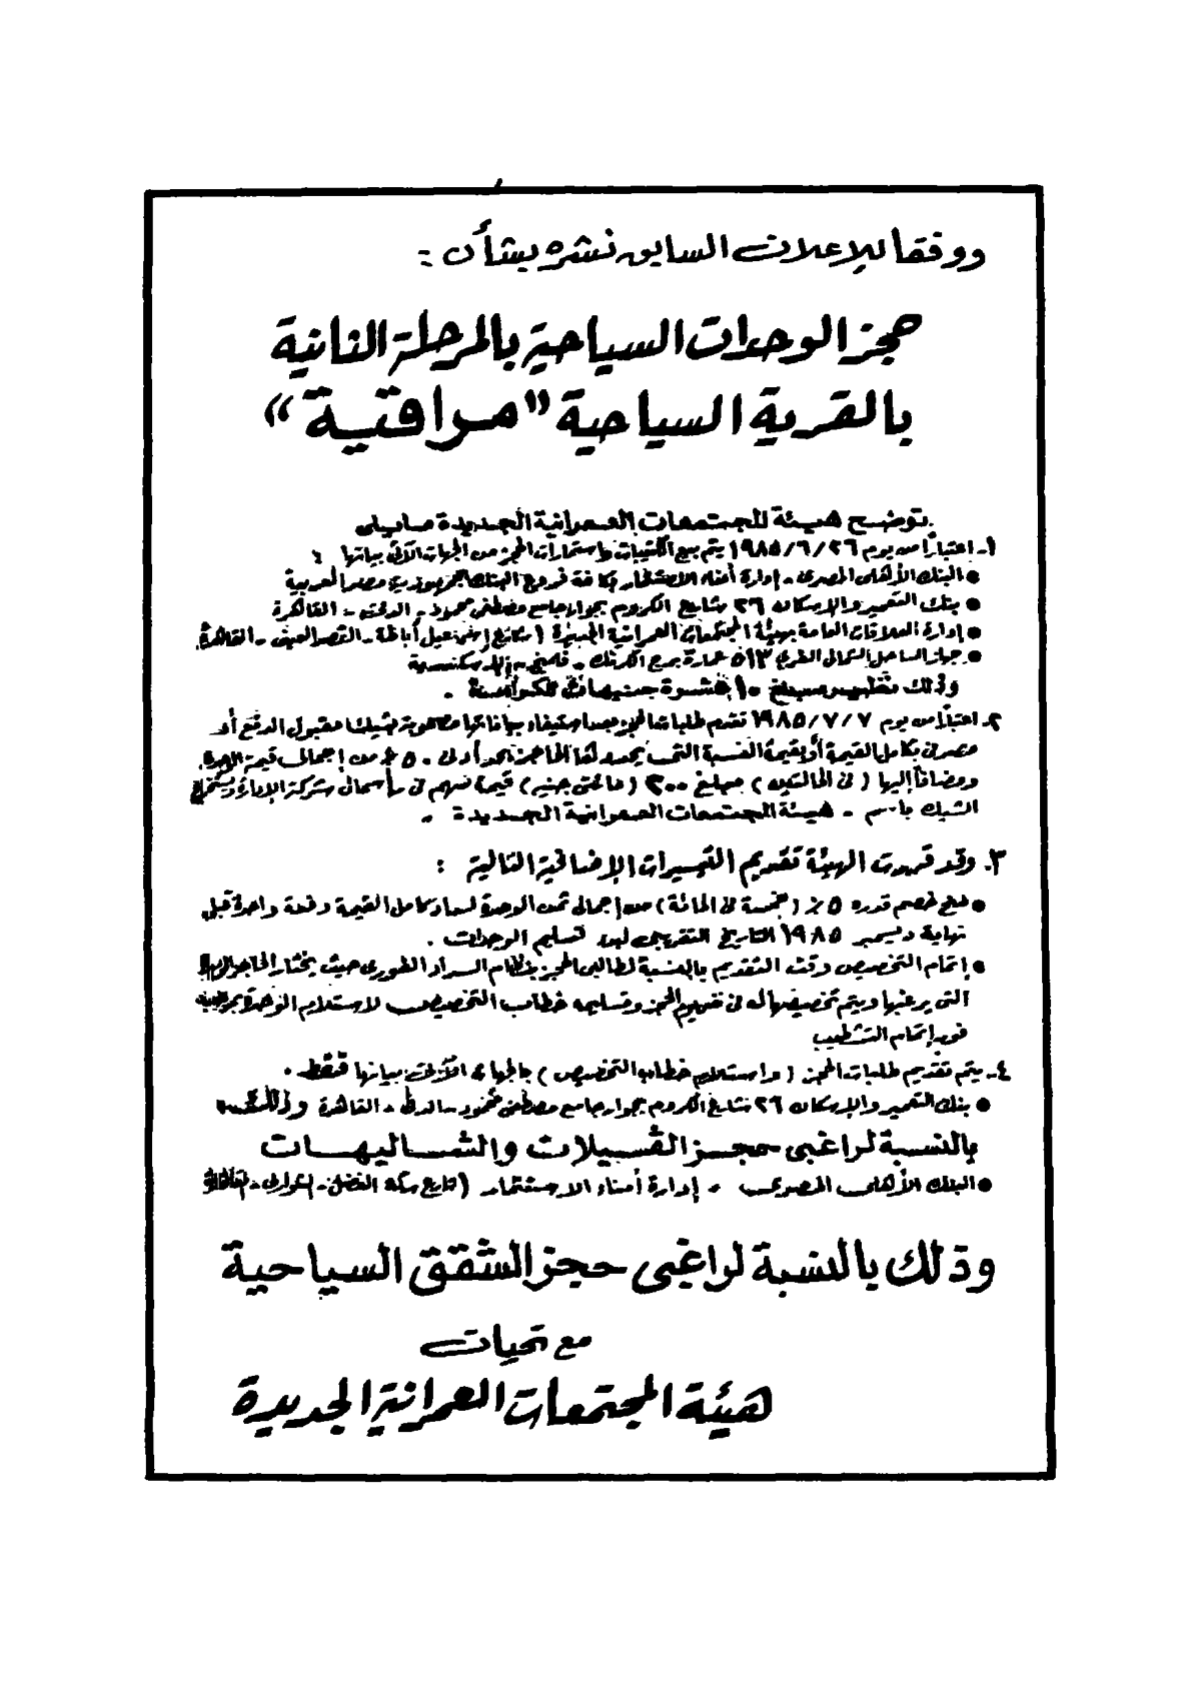 ووفقا للإعلان السابق نشره بشأن :
حجز الوحدات السياحية بالمرحلة الثانية
بالقرية السياحية "مراقية"
توضح هيئة المجتمعات العمرانية الجديدة مايلى
١- اعتبارًا من يوم ١٩٨٥/٦/٢٦ يتم بيع الكتيبات واستمارات الحجز من الجهات الآتى بياناتها :
● البنك الأهلى المصرى - إدارة أمناء الاستثمار بكافة فروع البنك بجمهورية مصر العربية
● بنك التعمير والإسكان ٢٦ شارع الكروم بجوار جامع مصطفى محمود - الدقى - القاهرة
● إدارة العلاقات العامة بهيئة المجتمعات العمرانية الجديدة ( شارع إسماعيل أباظة - القصر العينى - القاهرة
● جهاز الساحل الشمالى الغربى ٥١٣ عمارة برج الكرنك -
وذلك نظير مبلغ ١٠ عشرة جنيهات للكراسة .
٢- اعتبارًا من يوم ١٩٨٥/٧/٧ تقدم طلبات الحجز بعد استيفاء بياناتها مصحوبة بشيك مقبول الدفع أو
مصرفى بكامل القيمة أو بقيمة النسبة التى يحددها الحاجز بحد أدنى ٥٠٪ من إجمالى قيمة الوحدة
ومضافاً إليها ( فى الحالتين ) مبلغ ٢٠٠ ( مائتى جنيه ) قيمة سهم فى رأسمال شركة الإدارة ويستخرج
الشيك باسم - هيئة المجتمعات العمرانية الجديدة .
٣- وقد قررت الهيئة تقديم التيسيرات الإضافية التالية :
● منح خصم قدره ٥٪ ( خمسة فى المائة ) من إجمالى ثمن الوحدة لسداد كامل القيمة دفعة واحدة قبل
نهاية ديسمبر ١٩٨٥ التاريخ التقريبى لبدء تسليم الوحدات .
● إتمام التخصيص وقت التقديم بالنسبة لطالبى الحجز بنظام السداد الفورى حيث يختار الحاجز الوحدة
التى يرغبها ويتم تخصيصها له فى نفس يوم الحجز وتسليمه خطاب التخصيص لاستلام الوحدة بموجبه
فور إتمام التشطيب
٤- يتم تقديم طلبات الحجز ( واستلام خطاب التخصيص ) بالجهات الآتى بيانها فقط .
● بنك التعمير والإسكان ٢٦ شارع الكروم بجوار جامع مصطفى محمود - الدقى - القاهرة وذلك
بالنسبة لراغبى حجز الفيلات والشاليهات
● البنك الأهلى المصرى - إدارة أمناء الاستثمار ( شارع سكة الفضل - شواربى - القاهرة
وذلك بالنسبة لراغبى حجز الشقق السياحية
مع تحيات
هيئة المجتمعات العمرانية الجديدة